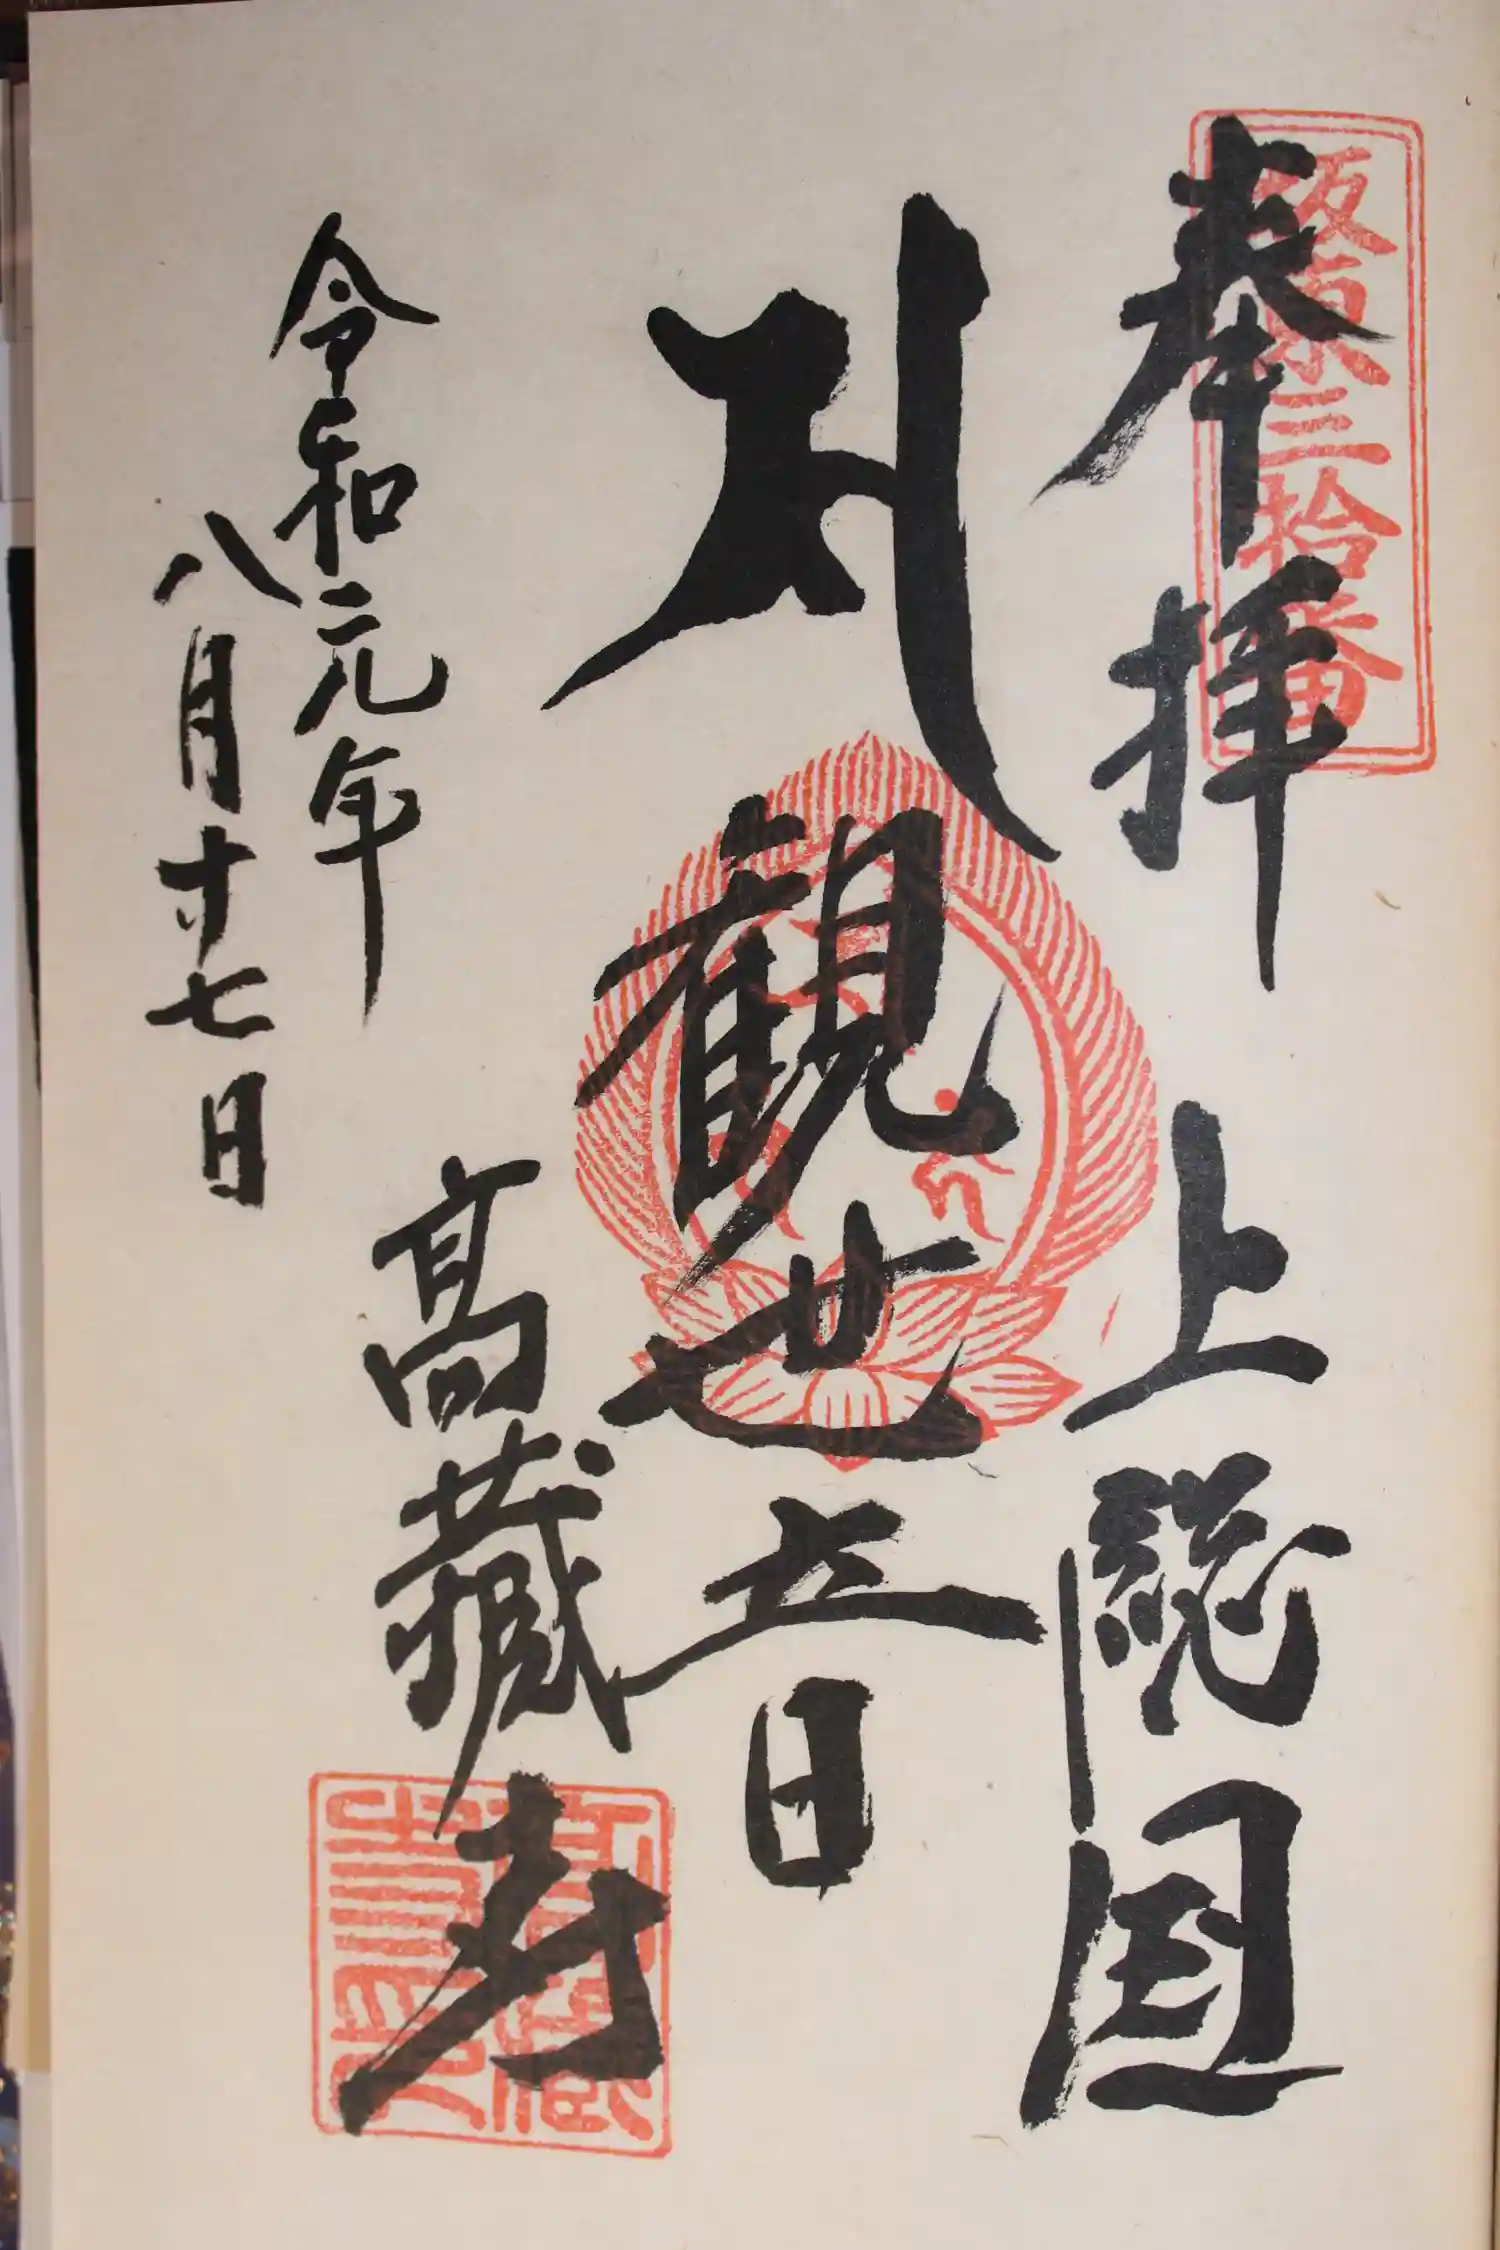 坂東三拾番
奉拝 上総国
観世音
高藏寺
令和元年
八月十七日